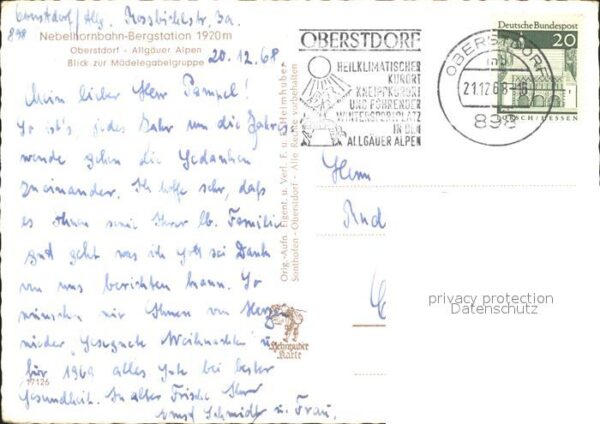 Oberstdorf/Allg. Rossbichlstr. 3a.
898
Nebelhornbahn-Bergstation 1920m
Oberstdorf - Allgäuer Alpen
Blick zur Mädelegabelgruppe
20.12.68
Mein lieber Herr Pampel!
So ist's, jedes Jahr um die Jahres
wende gehen die Gedanken
zueinander. Ich hoffe sehr, daß
es Ihnen samt Ihrer lb. Familie
gut geht was ich gott sei Dank
von uns berichten kann. So
wünschen wir Ihnen von Herzen
wieder "Gesegnete Weihnachten" u.
für 1969 alles Gute bei bester
Gesundheit. In alter Frische Ihr
Ernst Schmidt u. Frau.
17126
Orig.-Aufn. Eigent. u. Verl. F. u. E. Heimhuber
Sonthofen - Oberstdorf - Alle Rechte vorbehalten
Heimhuber
Karte
OBERSTDORF
HEILKLIMATISCHER
KURORT
KNEIPPKURORT
UND FÜHRENDER
WINTERSPORTPLATZ
IN DEN
ALLGÄUER ALPEN
OBERSTDORF
mb
21.12.68-16
898
Deutsche Bundespost
20
LORSCH/HESSEN
Herrn
Rud
privacy protection
Datenschutz